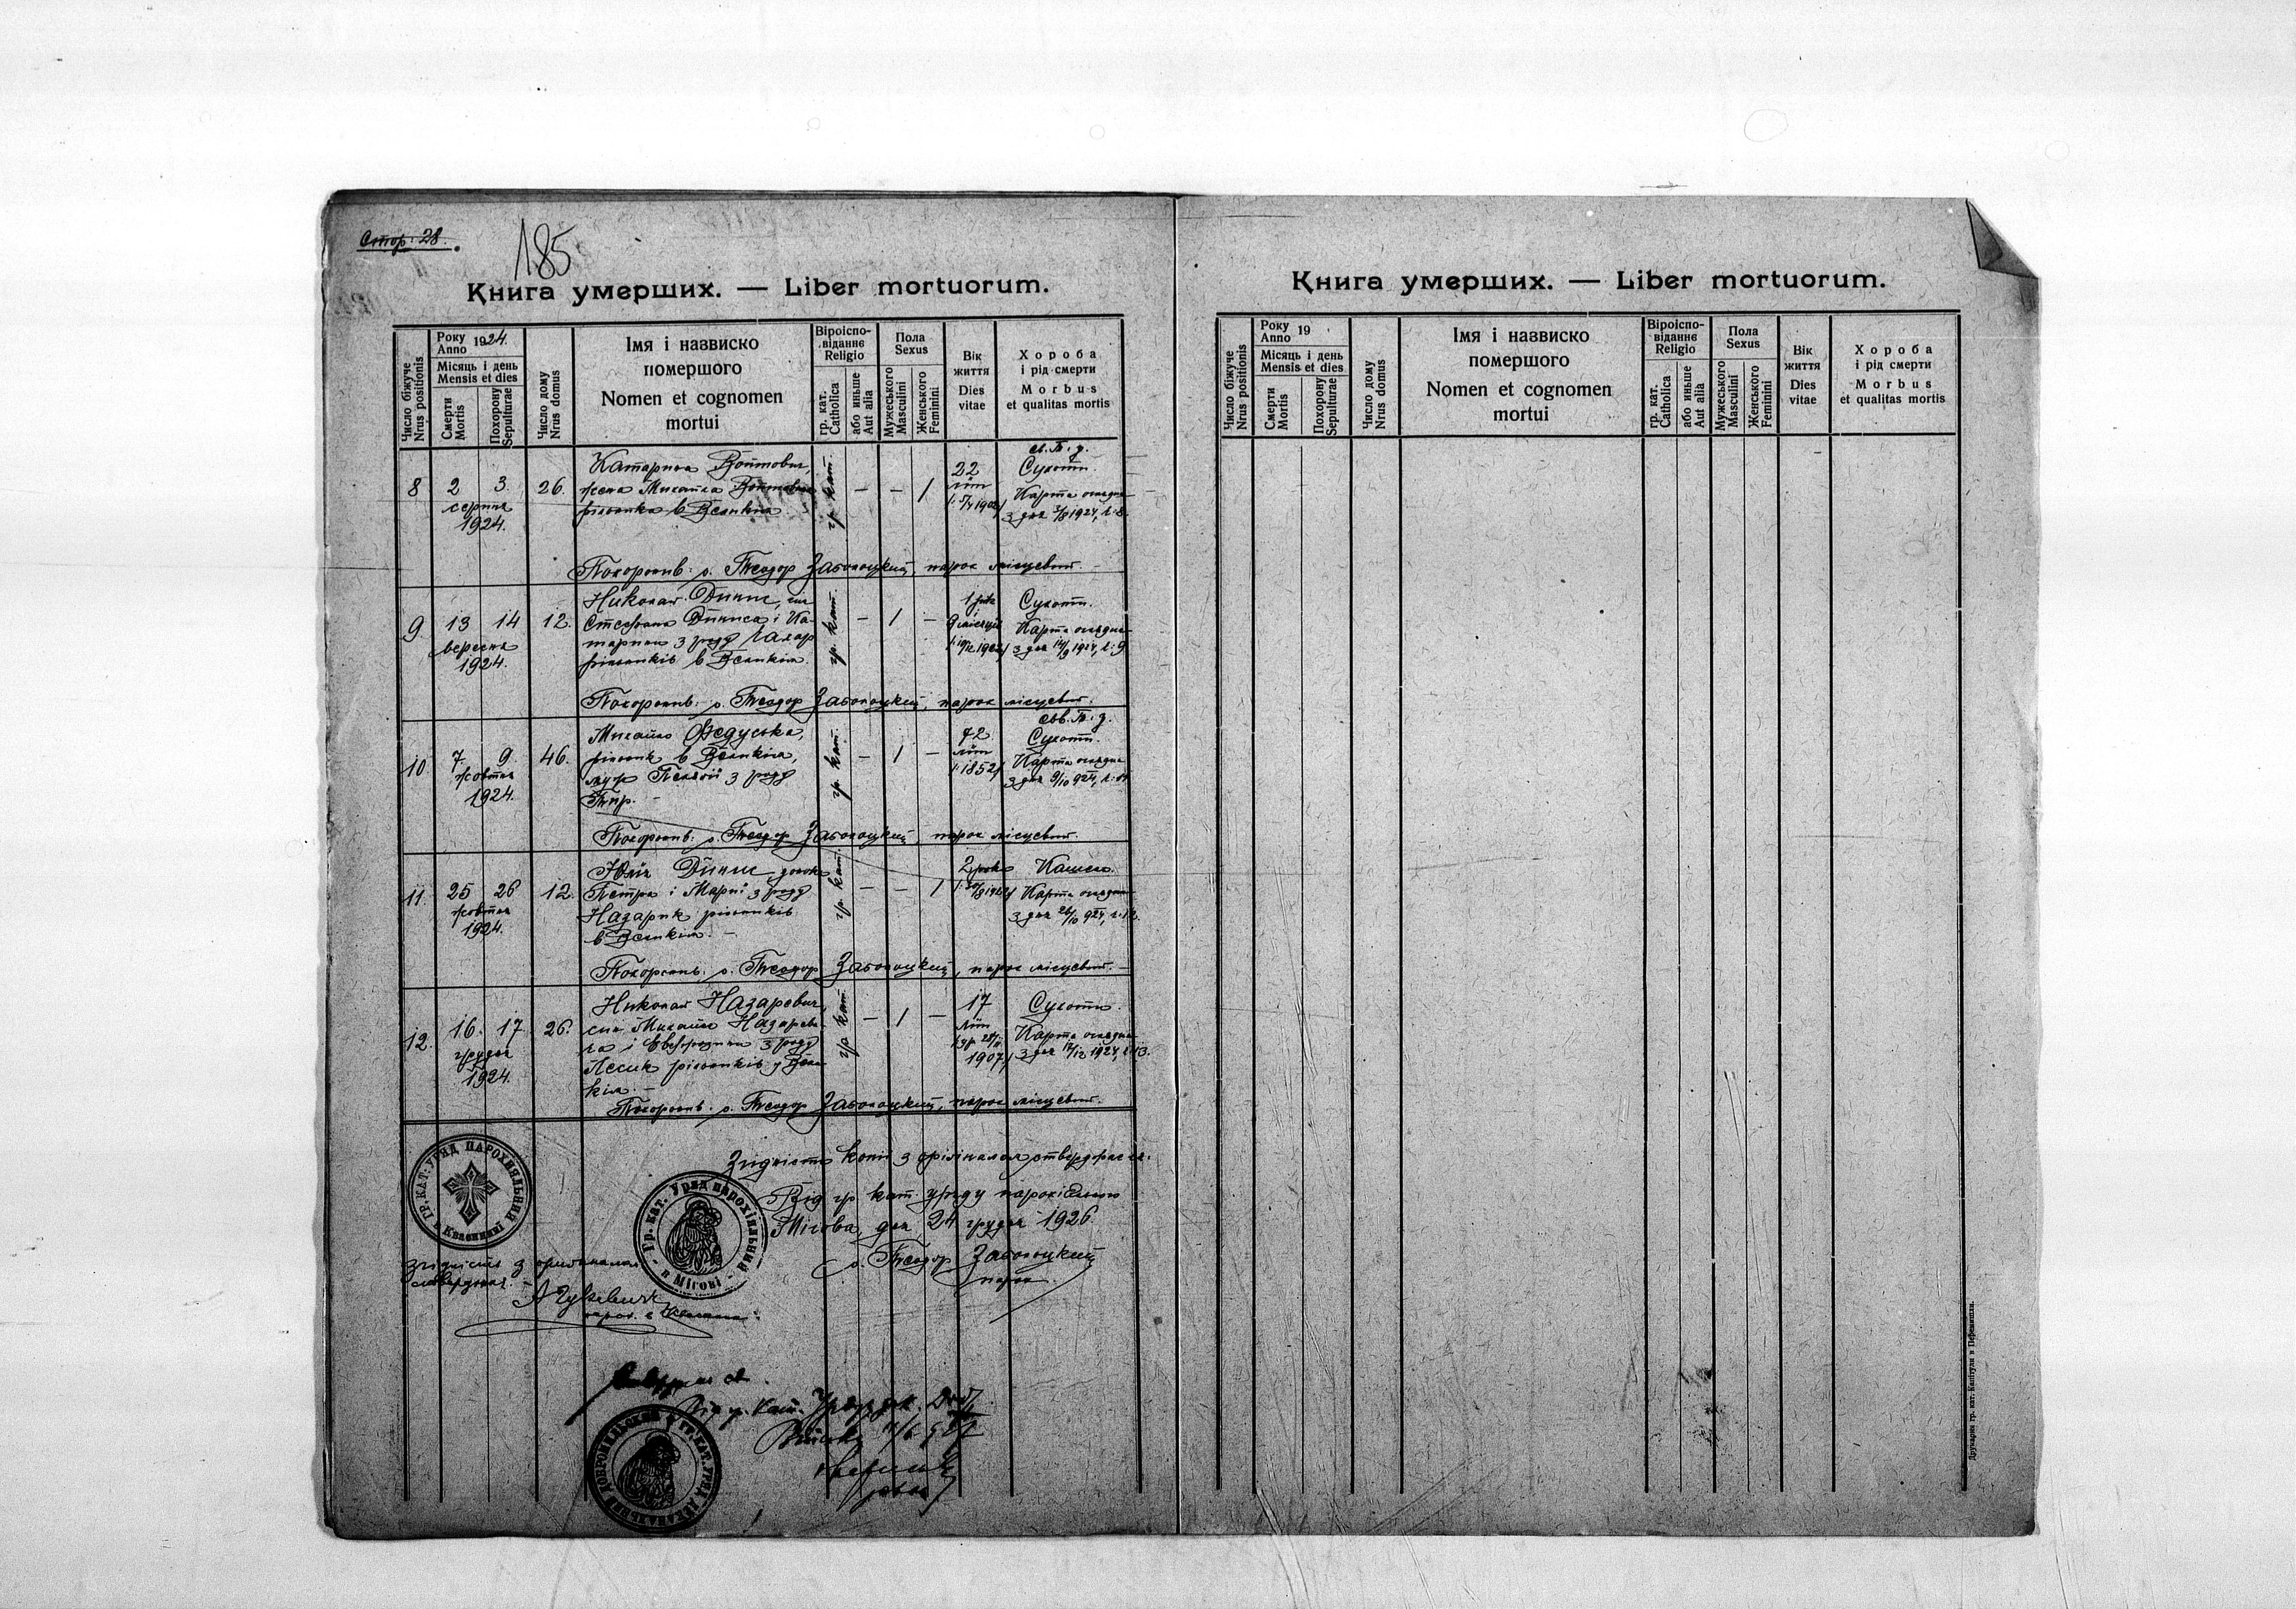 Стор: 28.
185
Книга умерших. — Liber mortuorum.
Число біжуче
Nrus positionis
Року
Anno 1924.
Місяць і день
Mensis et dies
Смерти
Mortis
Похорону
Sepulturae
Число дому
Nrus domus
Імя і назвиско
помершого
Nomen et cognomen
mortui
Віроіспо-
віданнє
Religio
гр. кат.
Catholica
або иньше
Aut alia
Пола
Sexus
Мужеського
Masculini
Женського
Feminini
Вік
життя
Dies
vitae
Хороба
і рід смерти
Morbus
et qualitas mortis
8
2 3
серпня
1924.
26.
Катарина Войтович,
жена Михайла Войтовича
рільника в Великім
гр. кат.
— — 1
22
літ
св. Т. д.
Сухоти.
Карта оглядин
з дня 3/8 1924, ч: 8.
Похоронив: о. Теодор Заболоцкий, парох місцевий. —
9.
13 14
вересня
1924.
12.
Николай Динис, син
Стефана Диниса і Ка-
тарини з роду
рільників в Великім.
гр. кат.
— 1 —
9 місяців
Сухоти.
Карта оглядин
з дня 14/9 1924, ч: 9
Похоронив: о. Теодор Заболоцкий, парох місцевий.
10
7. 9.
жовтня
1924.
46.
Михайло Федуська,
рільник в Великім,
муж з роду
гр. кат.
— 1 —
72
літ
/: 1852 /
Сухоти.
Карта оглядин
з дня 9/10 924, ч:
Похоронив: о. Теодор Заболоцкий, парох місцевий.
11.
25 26
жовтня
1924.
12.
Юлія Динис донька
Петра і Марії з роду
Назарик рільників
в Великім. —
гр. кат.
— — 1
2 роки
Кашель.
Карта оглядин
з дня 26/10 924, ч:
Похоронив: о. Теодор Заболоцкий, парох місцевий. —
12.
16. 17
грудня
1924.
26.
Николай Назаревич,
син Михайла Назареви-
ча і Евфрозини з роду
Лесик рільників у Вели-
кім. —
гр. кат.
— 1 —
17
літ
1907 /
Сухоти.
Карта оглядин
з дня 17/12 1924, ч: 13.
Похоронив: о. Теодор Заболоцкий, парох місцевий.
ГР. КАТ. УРЯД ПАРОХІЯЛЬНИЙ
в Квасинині
Гр. кат. Уряд парохіяльний
в Мігові
Згідність копії з оріґіналом стверджається.
Від гр. кат. уряду парохіяльного
Мігова, дня 24 грудня 1926.
о. Теодор Заболоцкий
парох.
Згідність з оригіналом
стверджую. —
Від гр. кат. Уряду
Книга умерших. — Liber mortuorum.
Число біжуче
Nrus positionis
Року
Anno 19
Місяць і день
Mensis et dies
Смерти
Mortis
Похорону
Sepulturae
Число дому
Nrus domus
Імя і назвиско
помершого
Nomen et cognomen
mortui
Віроіспо-
віданнє
Religio
гр. кат.
Catholica
або иньше
Aut alia
Пола
Sexus
Мужеського
Masculini
Женського
Feminini
Вік
життя
Dies
vitae
Хороба
і рід смерти
Morbus
et qualitas mortis
Друкарня гр. кат. Капітули в Перемишли.